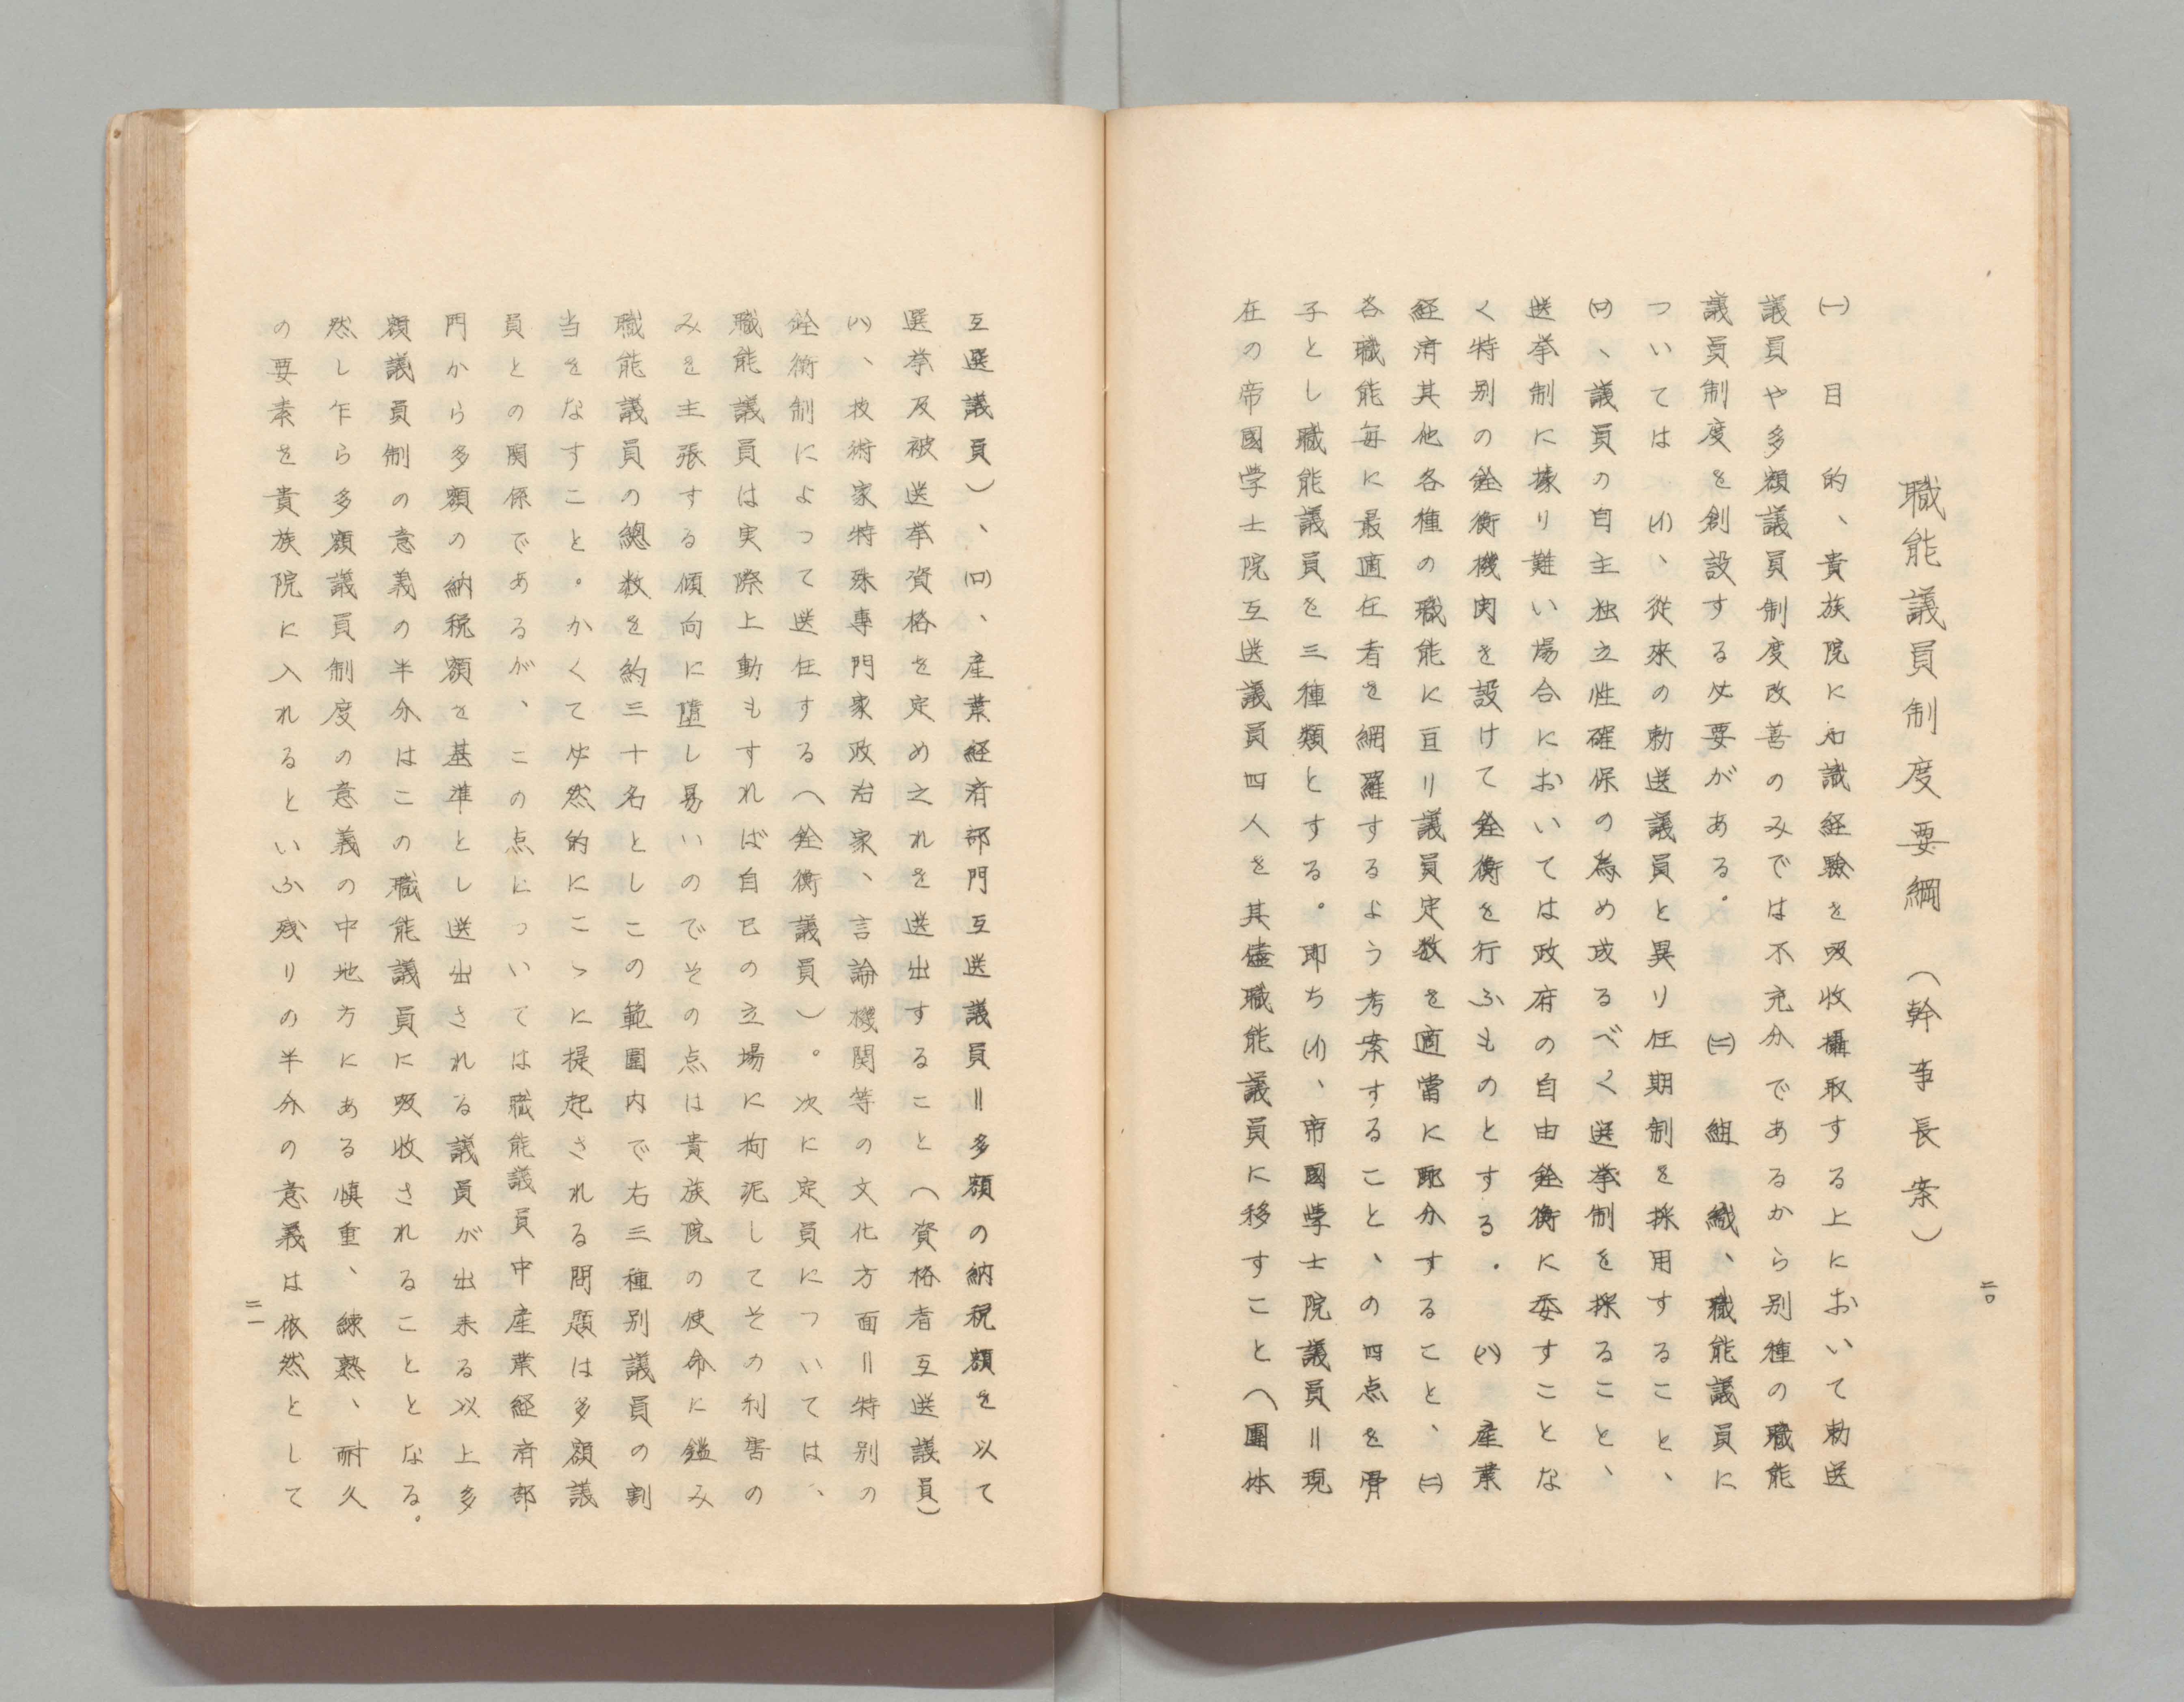 職能議員制度要綱（幹事長案）
㈠　目　的、貴族院に知識経験を吸收攝取する上において勅送
議員や多額議員制度改善のみでは不充分であるから別種の職能
議員制度を創設する必要がある。　㈡　組　織、職能議員に
ついては　(イ)、従來の勅送議員と異り任期制を採用すること、
(ロ)、議員の自主独立性確保の為め成るべく選挙制を採ること、
送挙制に據り難い場合においては政府の自由銓衡に委すことな
く特別の銓衡機関を設けて銓衡を行ふものとする．　(ハ)　産業
経済其他各種の職能に亘り議員定数を適當に配分すること、㈡
各職能毎に最適任者を網羅するよう考案すること、の四点を骨
子とし職能議員を三種類とする。即ち(イ)、帝國學士院議員＝現
在の帝國学士院互送議員四人を其儘職能議員に移すこと（團体
二〇
互選議員）、(ロ)、産業経済部門互送議員＝多額の納税額を以て
選挙及被送挙資格を定め之れを送出すること（資格者互送議員）
(ハ)、技術家特殊専門家政治家、言論機関等の文化方面＝特別の
銓衡制によって送任する（銓衡議員）。次に定員については、
職能議員は実際上動もすれば自已の立場に拘泥してその利害の
みを主張する傾向に墮し易いのでその点は貴族院の使命に鑑み
職能議員の總数を約三十名としこの範圍内で右三種別議員の割
当をなすこと。かくて必然的にこゝに提起される問題は多額議
員との関係であるが、この点については職能議員中産業経済部
門から多額の納税額を基準とし送出される議員が出来る以上多
額議員制の意義の半分はこの職能議員に吸收されることとなる。
然し乍ら多額議員制度の意義の中地方にある慎重、練熟、耐久
の要素を貴族院に入れるといふ残りの半分の意義は依然として
二一